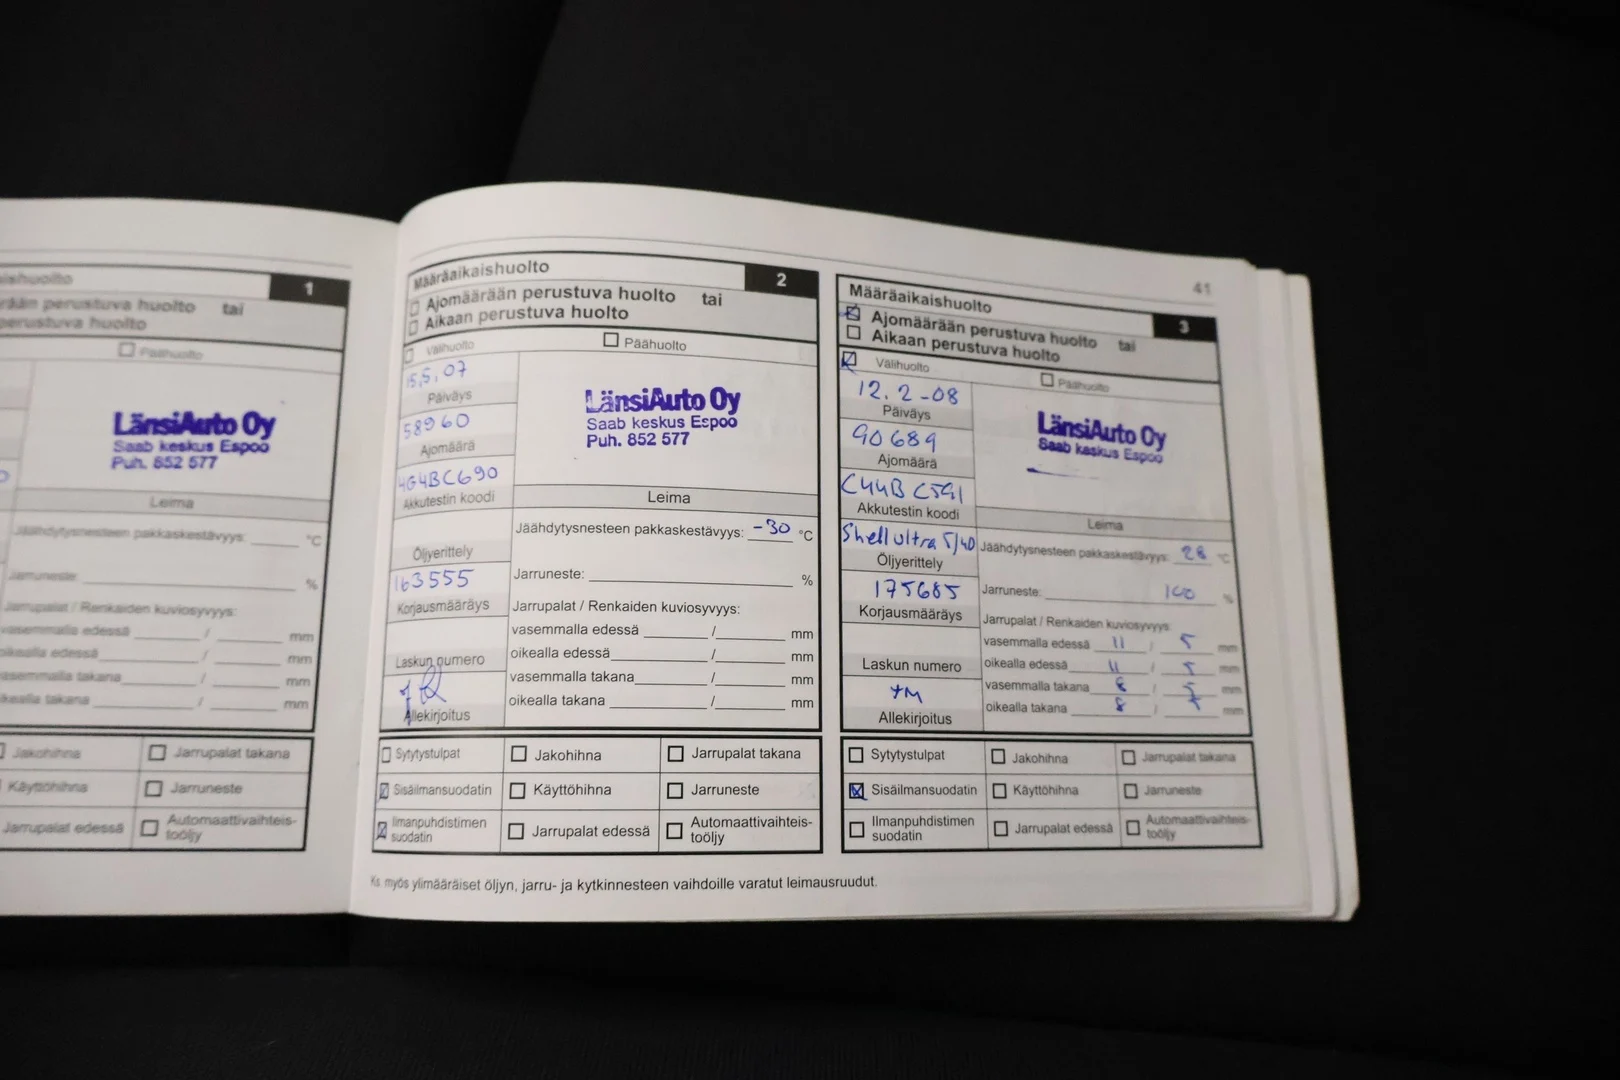 1
rään perustuva huolto tai
perustuva huolto
Päähuolto
LänsiAuto Oy
Saab keskus Espoo
Puh. 852 577
Leima
Jäähdytysnesteen pakkaskestävyys: °C
Jarruneste: %
Jarrupalat / Renkaiden kuviosyvyys:
vasemmalla edessä / mm
oikealla edessä / mm
vasemmalla takana / mm
oikealla takana / mm
Jakohihna Jarrupalat takana
Käyttöhihna Jarruneste
Jarrupalat edessä Automaattivaihteis-
toöljy
Määräaikaishuolto 2
Ajomäärään perustuva huolto tai
Aikaan perustuva huolto
Välihuolto Päähuolto
15,5,07
Päiväys
58960
Ajomäärä
4G4BC690
Akkutestin koodi
Öljyerittely
163555
Korjausmääräys
Laskun numero
Allekirjoitus
LänsiAuto Oy
Saab keskus Espoo
Puh. 852 577
Leima
Jäähdytysnesteen pakkaskestävyys: -30 °C
Jarruneste: %
Jarrupalat / Renkaiden kuviosyvyys:
vasemmalla edessä / mm
oikealla edessä / mm
vasemmalla takana / mm
oikealla takana / mm
Sytytystulpat Jakohihna Jarrupalat takana
Sisäilmansuodatin Käyttöhihna Jarruneste
Ilmanpuhdistimen
suodatin Jarrupalat edessä Automaattivaihteis-
toöljy
41
Määräaikaishuolto 3
Ajomäärään perustuva huolto tai
Aikaan perustuva huolto
Välihuolto Päähuolto
12.2-08
Päiväys
90689
Ajomäärä
C44B C591
Akkutestin koodi
Shell ultra 5/40
Öljyerittely
175685
Korjausmääräys
Laskun numero
Allekirjoitus
LänsiAuto Oy
Saab keskus Espoo
Leima
Jäähdytysnesteen pakkaskestävyys: 28 °C
Jarruneste: 100 %
Jarrupalat / Renkaiden kuviosyvyys:
vasemmalla edessä 11 / 5 mm
oikealla edessä 11 / 5 mm
vasemmalla takana 8 / 5 mm
oikealla takana 8 / mm
Sytytystulpat Jakohihna Jarrupalat takana
Sisäilmansuodatin Käyttöhihna Jarruneste
Ilmanpuhdistimen
suodatin Jarrupalat edessä Automaattivaihteis-
toöljy
Ks. myös ylimääräiset öljyn, jarru- ja kytkinnesteen vaihdoille varatut leimausruudut.